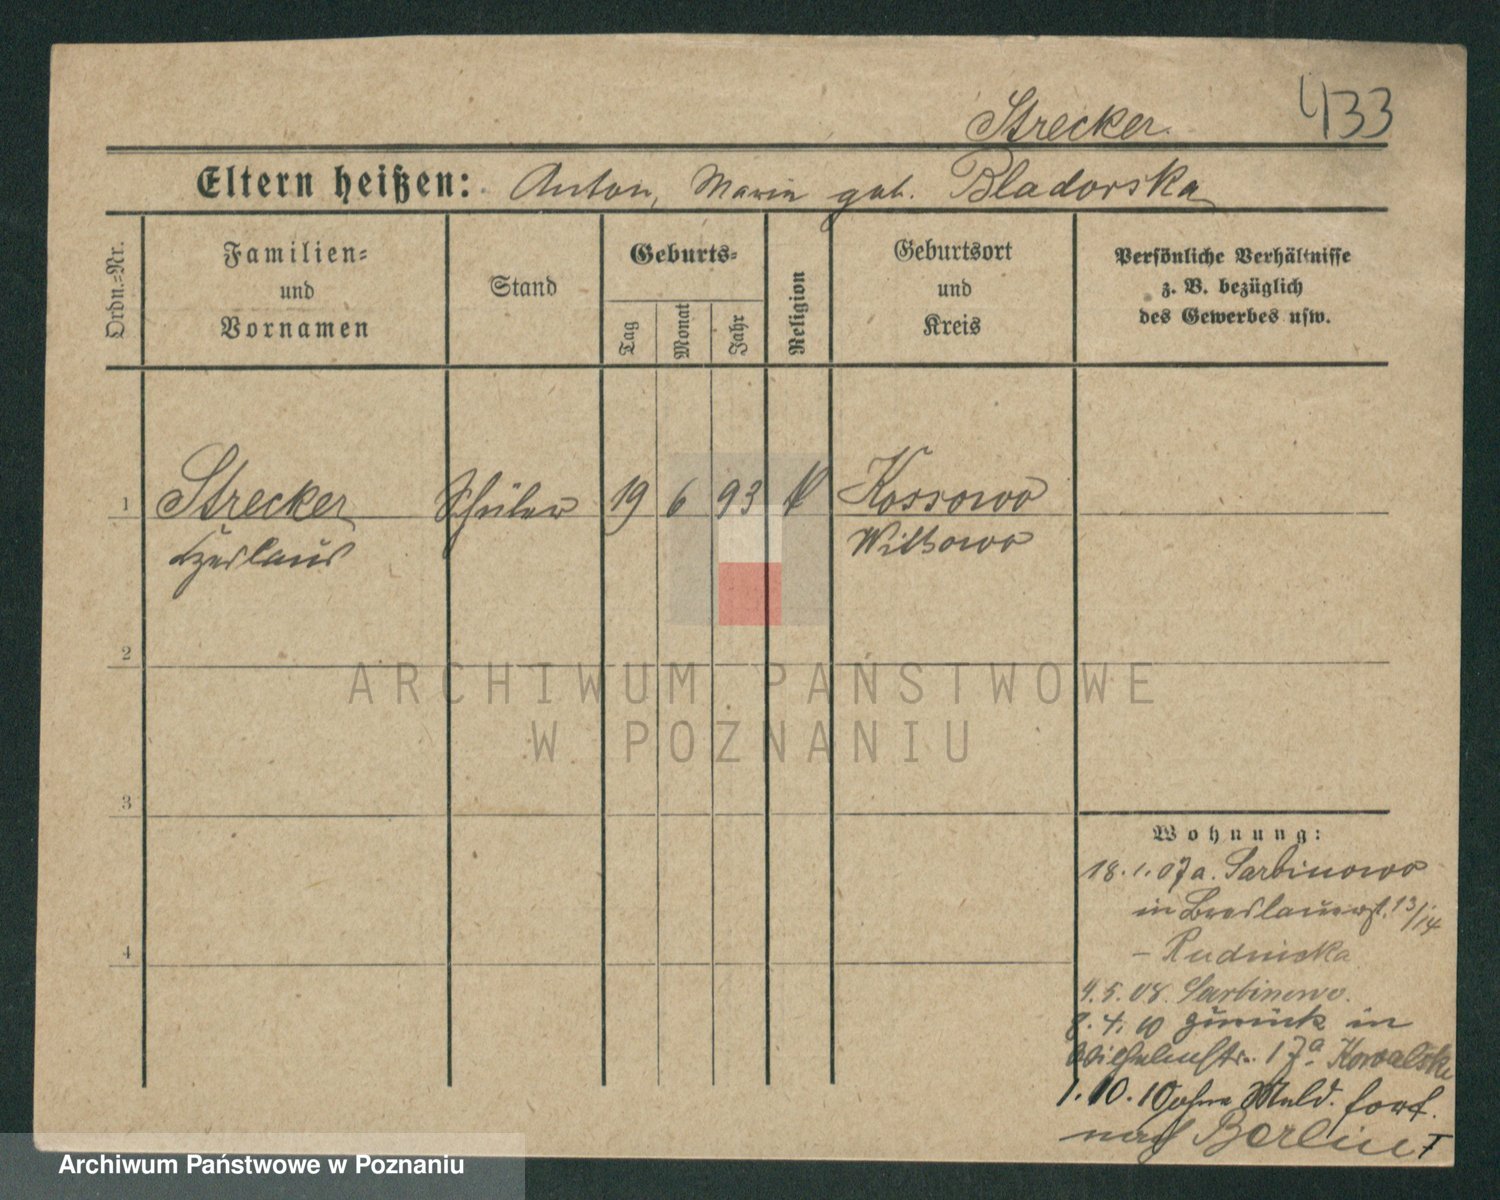 Strecker
433
Eltern heißen: Anton, Maria geb. Bladorska
Ordn.=Nr.
Familien=
und
Vornamen
Stand
Geburts=
Tag
Monat
Jahr
Religion
Geburtsort
und
Kreis
Persönliche Verhältnisse
z. B. bezüglich
des Gewerbes usw.
1 Strecker Schüler 19 6 93 K Kossowo
Czeslaus Witkowo
2
3
4
Wohnung:
18.1.07 a. Sarbinowo
in Breslauerst. 13/14
– Rudnicka
4.5.08. Sarbinowo.
8.4.10 zurück in
Wilhelmstr. 17a Kowalski
1.10.10 ohne Meld. fort.
nach Berlin
ARCHIWUM PAŃSTWOWE
W POZNANIU
Archiwum Państwowe w Poznaniu